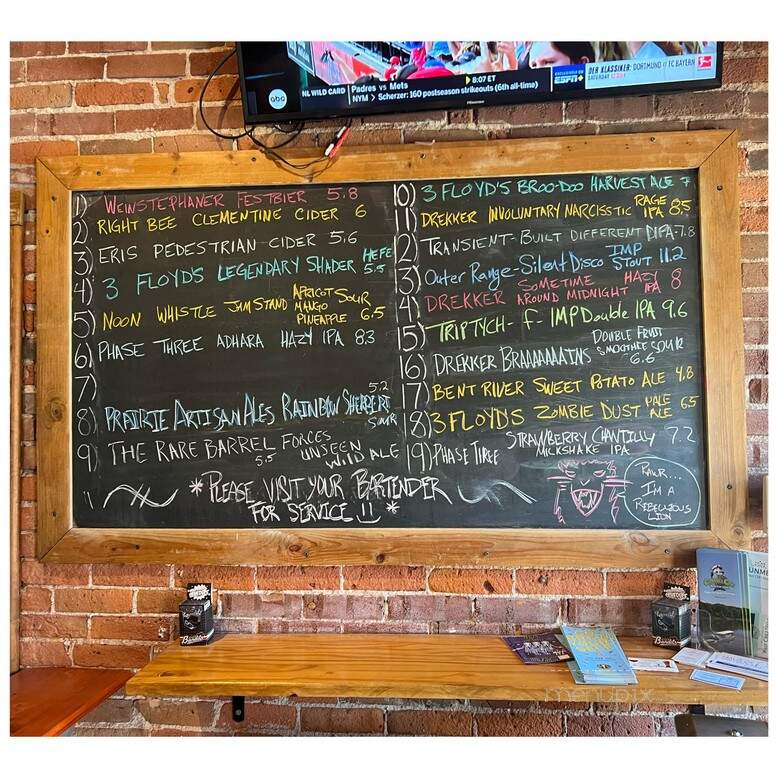 abc
NL WILD CARD
Padres vs Mets
8:07 ET
NYM > Scherzer: 160 postseason strikeouts (6th all-time)
EXCLUSIVELY ON
ESPN+
DER KLASSIKER: DORTMUND V FC BAYERN
1) WEINSTEPHANER FESTBIER 5.8
2) RIGHT BEE CLEMENTINE CIDER 6
3) ERIS PEDESTRIAN CIDER 5.6
4) 3 FLOYD'S LEGENDARY SHADER HEFE 5.5
5) NOON WHISTLE JAM STAND APRICOT SOUR MANGO PINEAPPLE 6.5
6) PHASE THREE ADHARA HAZY IPA 8.3
7)
8) PRAIRIE ARTISAN ALES RAINBOW SHERBERT SOUR 5.2
9) THE RARE BARREL FORCES UNSEEN WILD ALE 5.5
10) 3 FLOYD'S BROO-DOO HARVEST ALE 7
11) DREKKER INVOLUNTARY NARCISSTIC RAGE IPA 8.5
2) TRANSIENT - BUILT DIFFERENT DIPA - 7.8
3) Outer Range - Silent Disco IMP STOUT 11.2
4) DREKKER SOMETIME AROUND MIDNIGHT HAZY IPA 8
5) TRIPTYCH - f - IMP Double IPA 9.6
16) DREKKER BRAAAAAAAINS DOUBLE FRUIT SMOOTHIE SOUR 6.6
17) BENT RIVER SWEET POTATO ALE 4.8
18) 3 FLOYDS ZOMBIE DUST PALE ALE 6.5
19) PHASE THREE STRAWBERRY CHANTILLY MILKSHAKE IPA 7.2
* PLEASE VISIT YOUR BARTENDER
FOR SERVICE *
RAWR...
I'M A
REBELLIOUS
LION
menupix